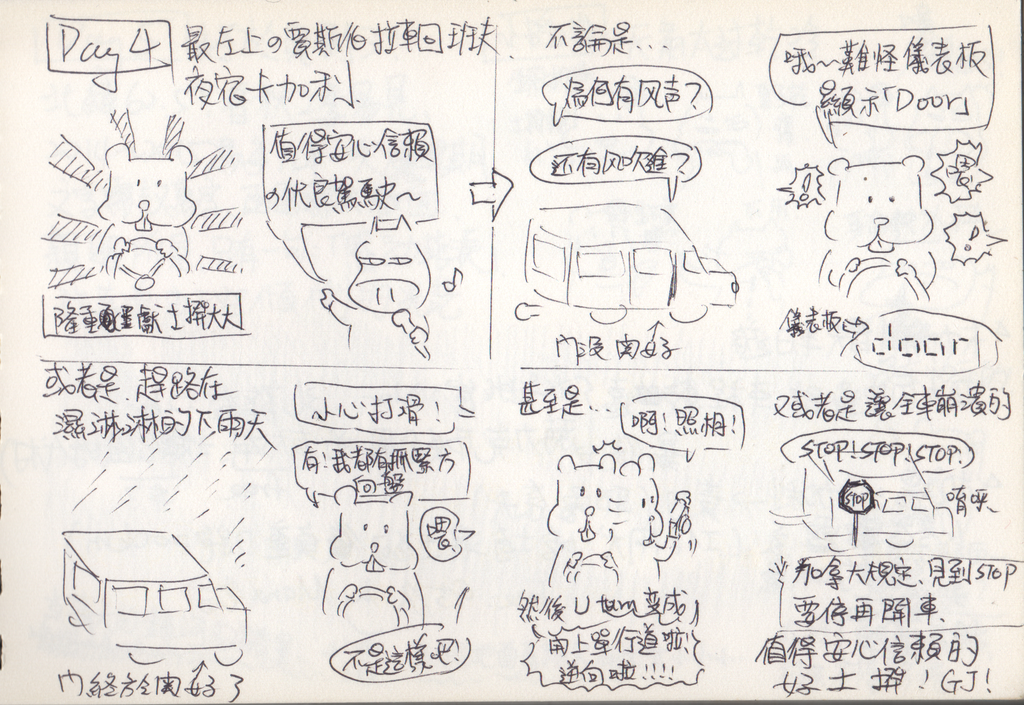 Day 4
最左上の賈斯伯拉車回班夫
夜宿卡加利
值得安心信賴
の优良駕駛～
隆重 獻 土撥大大
不論是…
為何有风声？
还有风吹進？
門沒関好
哦～難怪儀表板
顯示「Door」
儀表板
door
或者是 趕路在
濕淋淋的下雨天
小心打滑！
有！我都有抓緊方
向盤
不是這樣吧！
門終於関好了
甚至是…
啊！照相！
然後 U turn 変成
開上單行道啦！
逆向啦!!!!
又或者是 讓全車崩潰的
STOP!STOP!STOP!
STOP
加拿大規定，見到STOP
要停再開車
值得安心信賴的
好土撥！GJ！